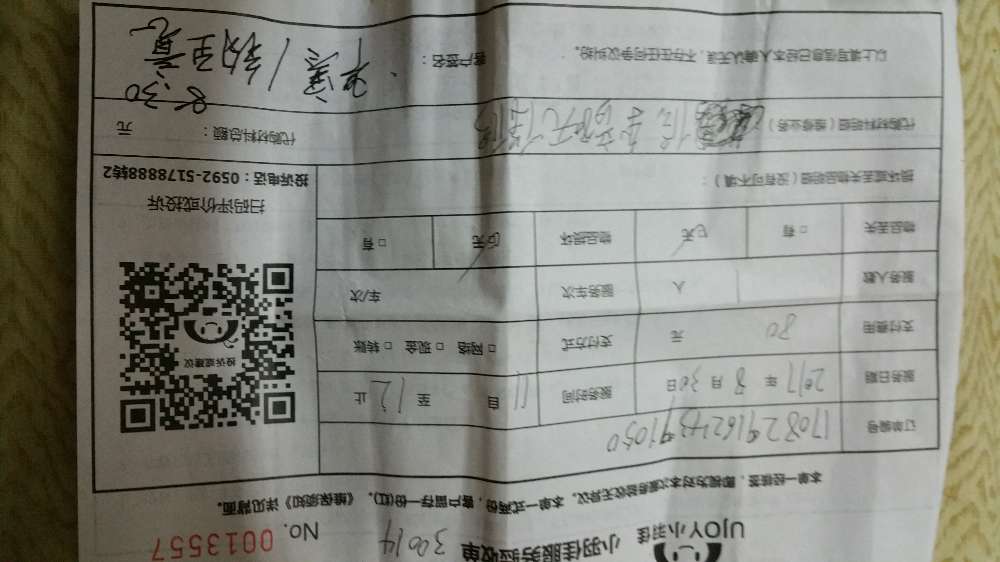 UJOY小羽佳 小羽佳服务验收单 30614 No. 0013557
本单一经核签，即视为对本次服务验收无异议。本单一式两份，客户留存一份(红)。《维保须知》详见背面。
订单编号
服务日期 2017 年 8 月 30 日 服务时间 自 11 至 12 止
支付费用 80 元 支付方式 □ 网络 □ 现金 □ 转账
服务人数 1 人 服务车次 车/次
物品丢失 □ 有 无 物品损坏 无 □ 有
损坏或丢失物品明细（没有可不填）：
投诉或建议
扫码评价或投诉
投诉电话：0592-5178888转2
代购材料明细（维修业务）
代购材料总额： 元
以上填写信息已经本人确认无误，不存在任何争议纠纷。
客户签名：
8:30